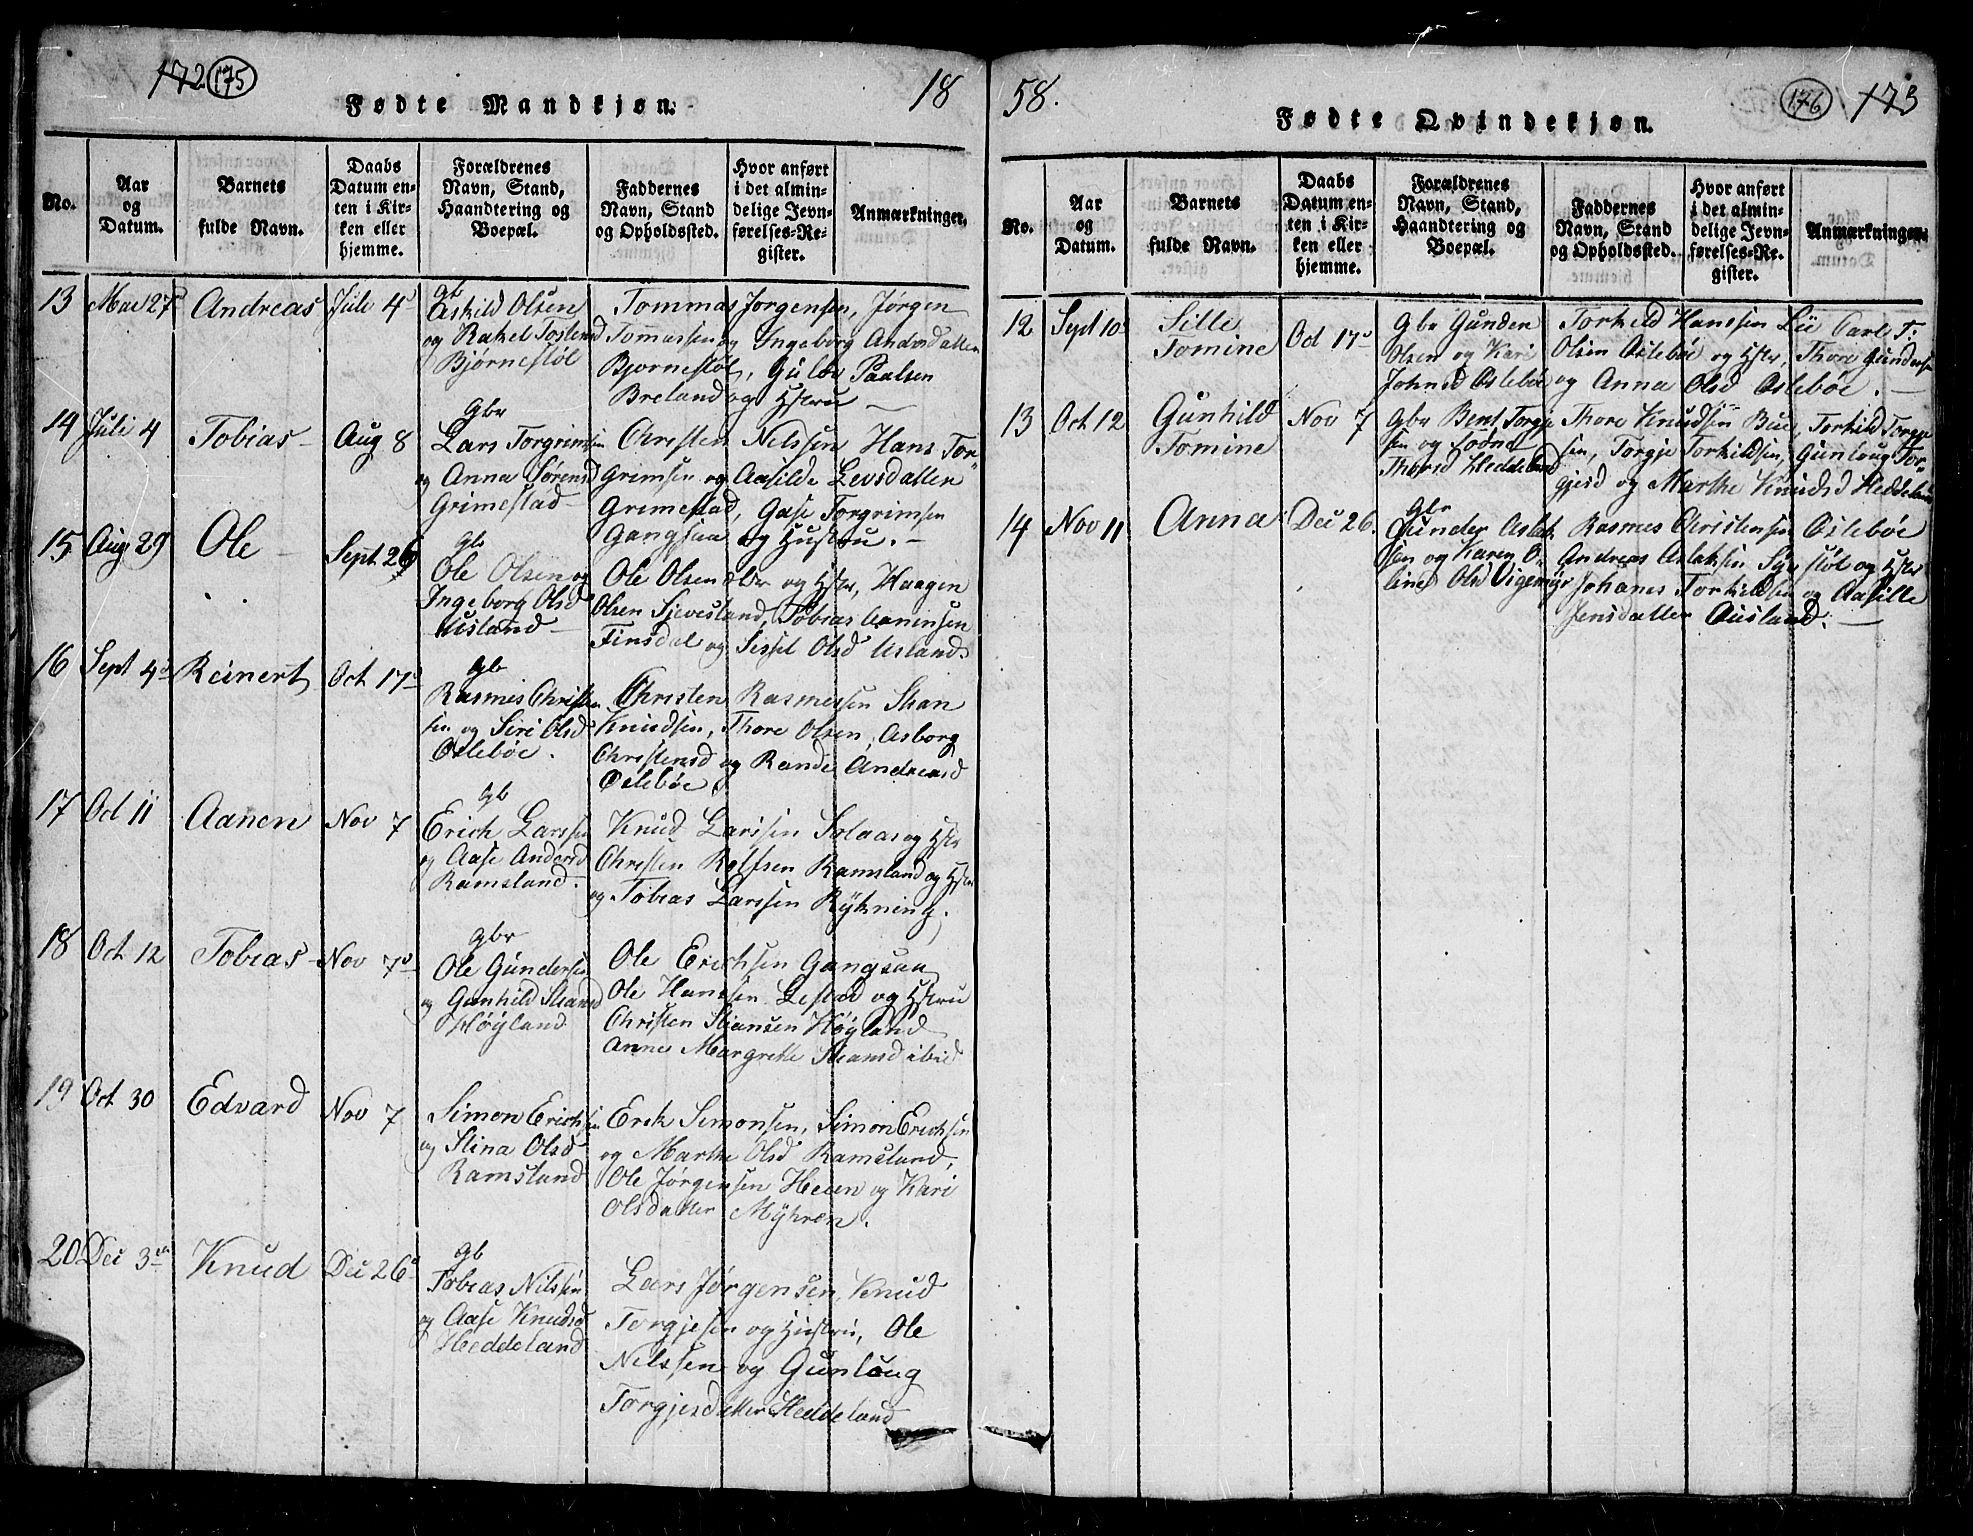 172 175
Fødte Mandkjøn.
18
No.
Aar og Datum.
Barnets fulde Navn.
Daabs Datum enten i Kirken eller hjemme.
Forældrenes Navn, Stand, Haandtering og Boepæl.
Faddernes Navn, Stand og Opholdssted.
Hvor anført i det almindelige Jevnførelses-Register.
Anmærkninger.
13 Mai 27 Andreas Juli 4
gb
Askild Olsen
og Rakel Tostensd
Bjørnestøl
Tommas Jorgensen, Jørgen
Tommassen og Ingeborg Andersdatter
Bjornestøl, Gulov Paulsen
Breland og Hstru
14 Juli 4 Tobias Aug 8
Gbr
Lars Torgrimsen
og Anna Sørensd
Grimestad
Christen Nilssen, Hans Tor-
Grimsen og Aasilde Levsdatter
Gremestad, Gase Torgrimsen
Gangsaa og Hustru.
15 Aug 29 Ole Sept 26
gb
Ole Olsen og
Ingeborg Olsd
Usland
Ole Olsen ælder og Hstr, Haagen
Olsen Sjevesland, Tobias Aaninsen
Finsdal og Sissel Olsd Usland.
16 Sept 4d Reinert Oct 17d
gb
Rasmus Christen
sen og Siri Olsd
Oslebøe.
Christen Rasmussen Stian
Knudsen, Thore Olsen, Asborg
Christensd og Rande Andreasd
Oslebøe.
17 Oct 11 Aanen Nov 7
gb
Erich Larssen
og Aase Andersd
Ramsland.
Knud Larssen Solaas og Hstr
Christen Rolfsen Ramsland og Hstr
og Tobias Larssen Rykning.
18 Oct 12 Tobias Nov 7d
gbr
Ole Gundersen
og Gunhild Stiansd
Høyland
Ole Erichsen Gangsaa
Ole Hanssen Lestad og Hstru
Christen Stiansen Høyland
Anne Margrethe Stiansd ibid
19 Oct 30 Edvard Nov 7
Simon Erichsen
og Stina Olsd
Ramsland
Erik Simonsen, Simon Erichsen
og Marthe Olsd Ramsland,
Ole Jørgensen Heien og Kari
Olsdatter Myhren.
20 Dec 3 Knud Dec 26
gb
Tobias Nilssen
og Aase Knudsd
Heddeland
Lars Jørgensen, Knud
Torgjesen og Hustru, Ole
Nilssen og Gunloug
Torgjesdatter Heddeland
58.
Fødte Qvindekjøn.
176 173
No.
Aar og Datum.
Barnets fulde Navn.
Daabs Datum enten i Kirken eller hjemme.
Forældrenes Navn, Stand, Haandtering og Boepæl.
Faddernes Navn, Stand og Opholdssted.
Hvor anført i det almindelige Jevnførelses-Register.
Anmærkninger.
12 Sept 10 Sille Tomine Oct 17
Gbr Gunder
Olsen og Kari
Johnsd Oslebøe
Torkild Hanssen Lie Carl T.
Olsen Oslebøe og Hstr, Thore Gundersen
og Anna Olsd Oslebøe.
13 Oct 12 Gunhild Tomine Nov 7
Gbr Bent Torgje
sen og
Thorsd Heddeland
Thore Knudsen Bue, Torkild Torgje
sen, Torgje Torkildsen, Gunloug Tor-
gjesd og Marthe Knudsd Heddeland
14 Nov 11 Anna Dec 26.
gbr
Gunder Aslak
sen og Karen O-
line Olsd Vigemyr
Rasmus Christensen Oslebøe
Andreas Aslaksen støl og Hstr
Johanes Torkildsen og Aasille
Jensdatter Ausland.